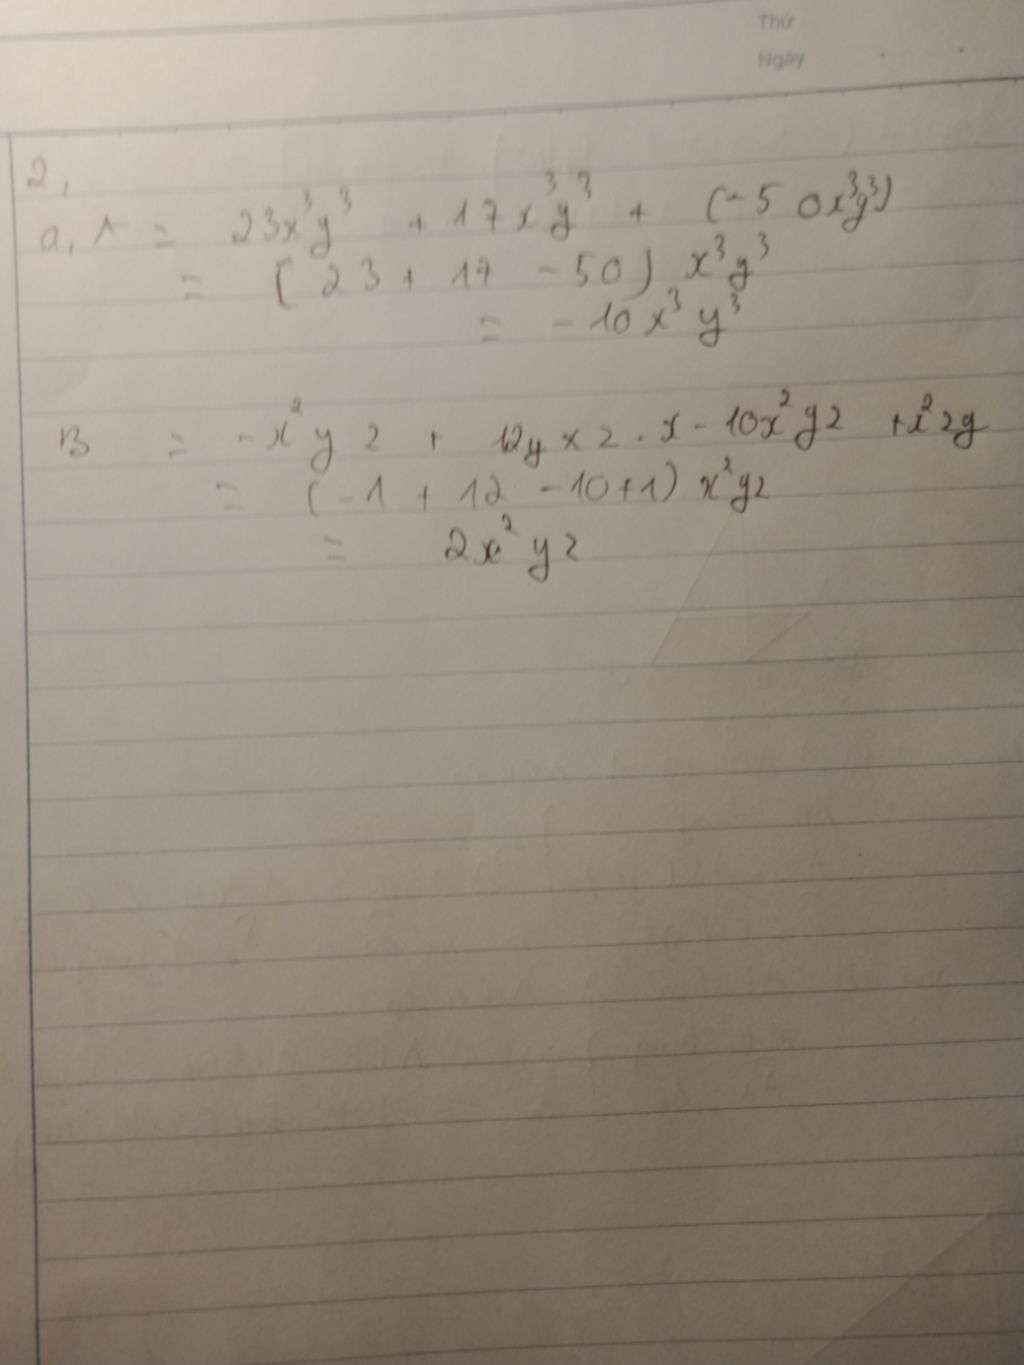 Thứ
Ngày
2,
a, A = 23x³y³ + 17x³y³ + (-50x³y³)
= (23 + 17 - 50) x³y³
= -10x³y³
B = -x²yz + 12yxz.x - 10x²yz + x²zy
= (-1 + 12 - 10+1) x²yz
= 2x²yz